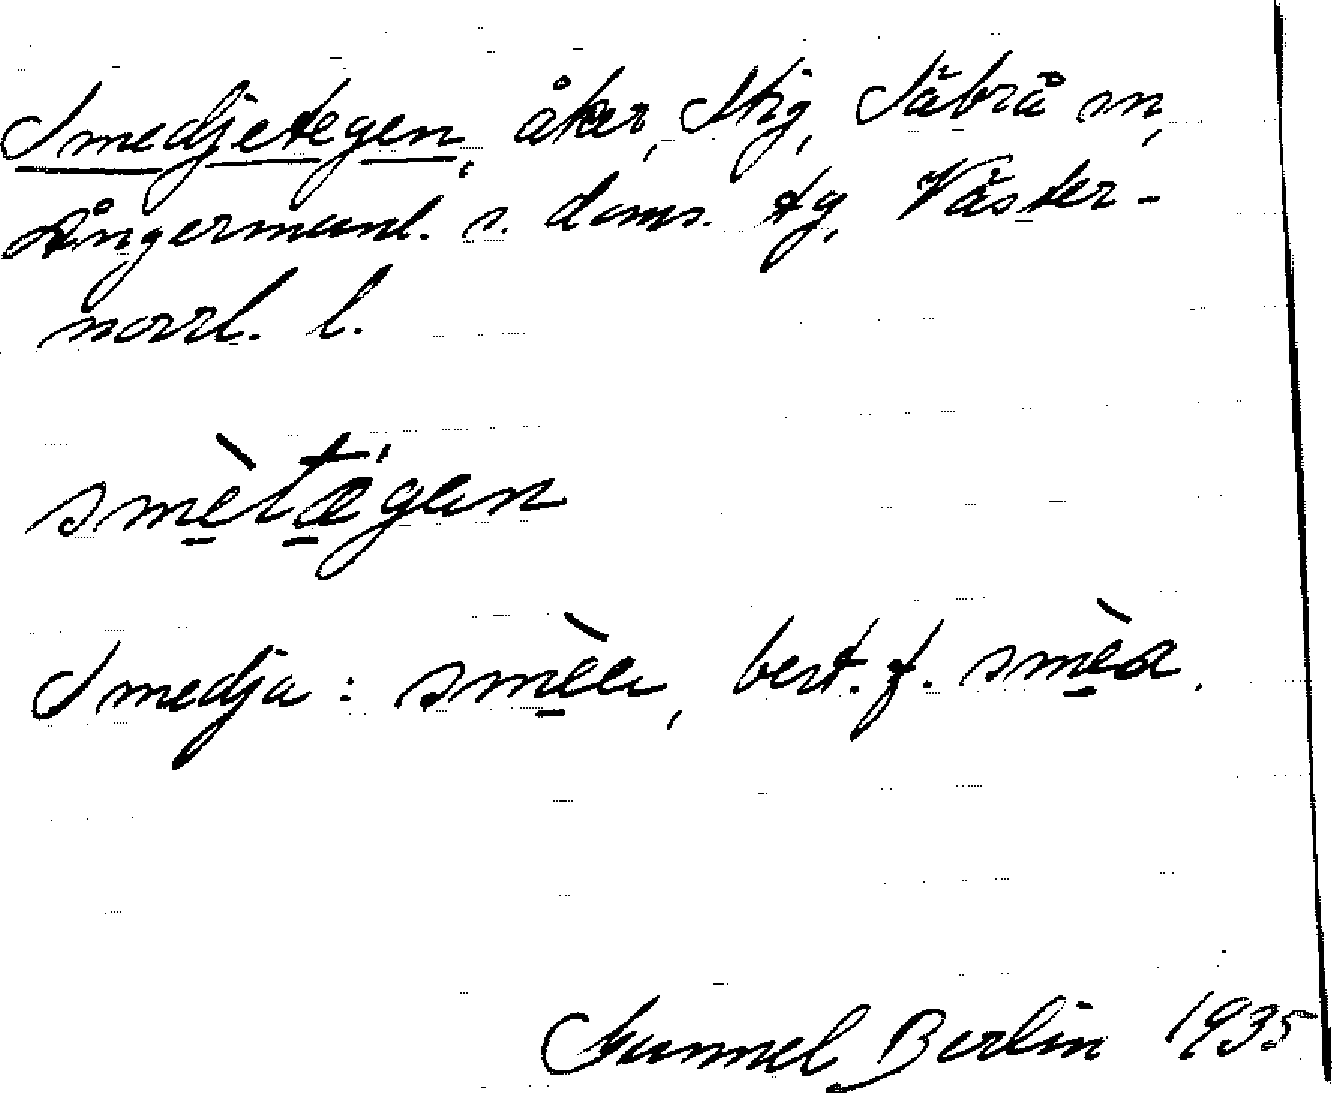 Smedjetegen, åker, Stig, Säbrå sn,
Ångermanl. s. doms. tg, Väster-
norrl. l.
smètæ̀gan
Smedja: smèa, best. f. smèa.
Gunnel Berlin 1935